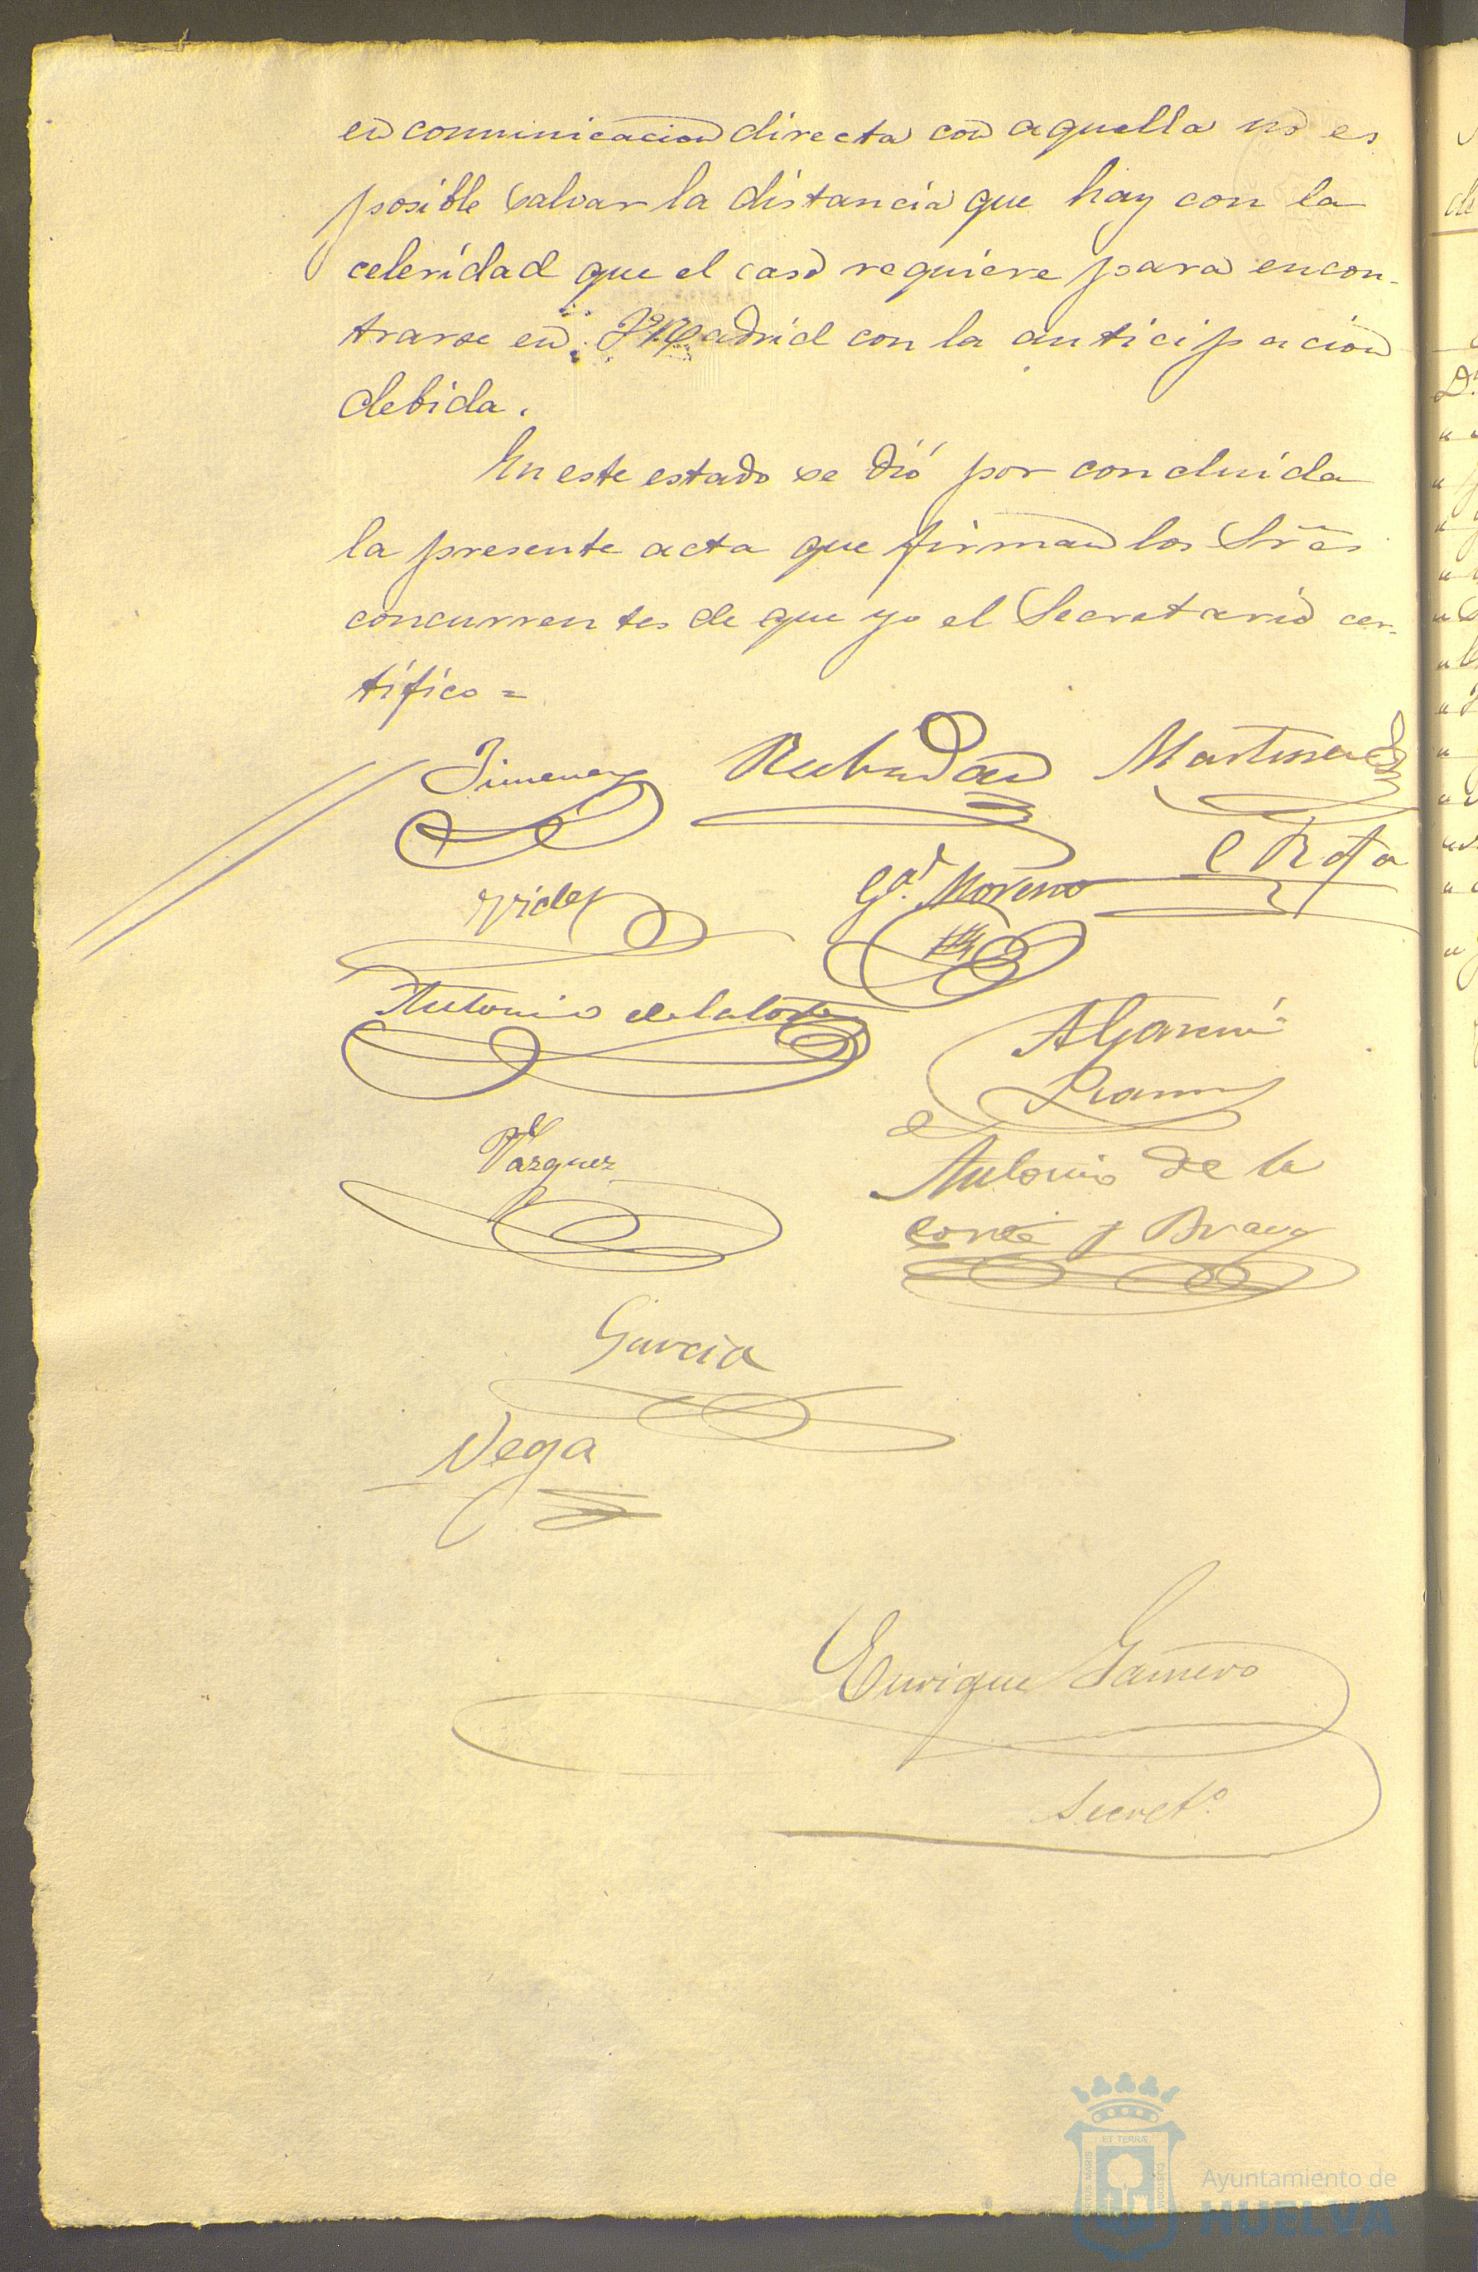 en comunicacion directa con aquella no es
posible salvar la distancia que hay con la
celeridad que el caso requiere para encon-
trarse en Madrid con la anticipacion
debida.
En este estado se dió por concluida
la presente acta que firman los Sres
concurrentes de que yo el Secretario cer-
tífico =
Jimenez Martinez
C Rofa
Gª. Moreno
Antonio de la Corte
A Garcia
Ramos
Vazquez
Antonio de la
Corte y Bravo
Garcia
Vega
Enrique Gamero
Secretº
ET TERRÆ
Ayuntamiento de
HUELVA